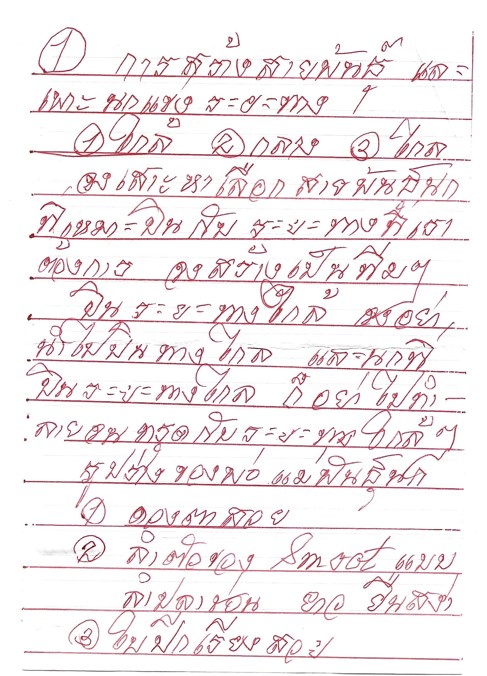 ① การสร้างสายพันธ์ และ
เพาะนกแข่ง ระยะทาง ๆ
① ใกล้ ② กลาง ③ ไกล
จงเสาะหาเลือกสายพันธ์นก
ที่เหมาะบินกับ ระยะทางที่เรา
ต้องการ จงสร้างเป็นทีมๆ
บินระยะทางใกล้ จงอย่า
นำไปบินทางไกล และนกที่
บินระยะทางไกล ก็อย่าไปทำ-
ลายมันทรุดกับระยะทางใกล้ๆ
รูปร่างของพ่อ แม่พันธุ์นก
① ดวงตาสวย
② ลำตัวของ Smoot แบบ
ลำปลาช่อน ยาว ยืนสง่า
③ ใบปีกเรียงสวย